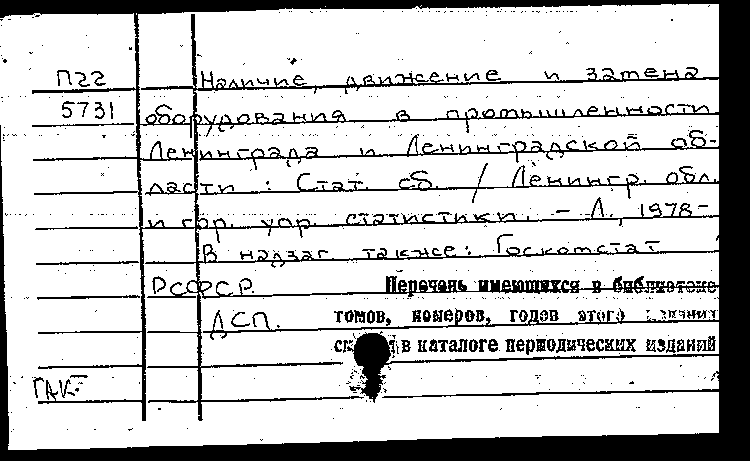 П22 Наличие, движение и замена
5731 оборудования в промышленности
Ленинграда и Ленинградской об-
ласти : Стат. сб. / Ленингр. обл.
и гор. упр. статистики. – Л., 1978–
В надзаг. также: Госкомстат
РСФСР.
Перечень имеющихся в библиотеке
ДСП. томов, номеров, годов этого издания
в каталоге периодических изданий